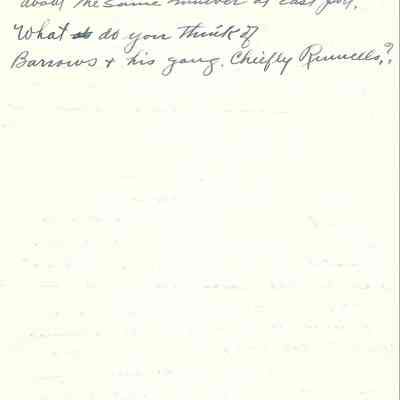 about the same number as last year.
What do you think of
Barrows + his gang. Chiefly Runnells,?